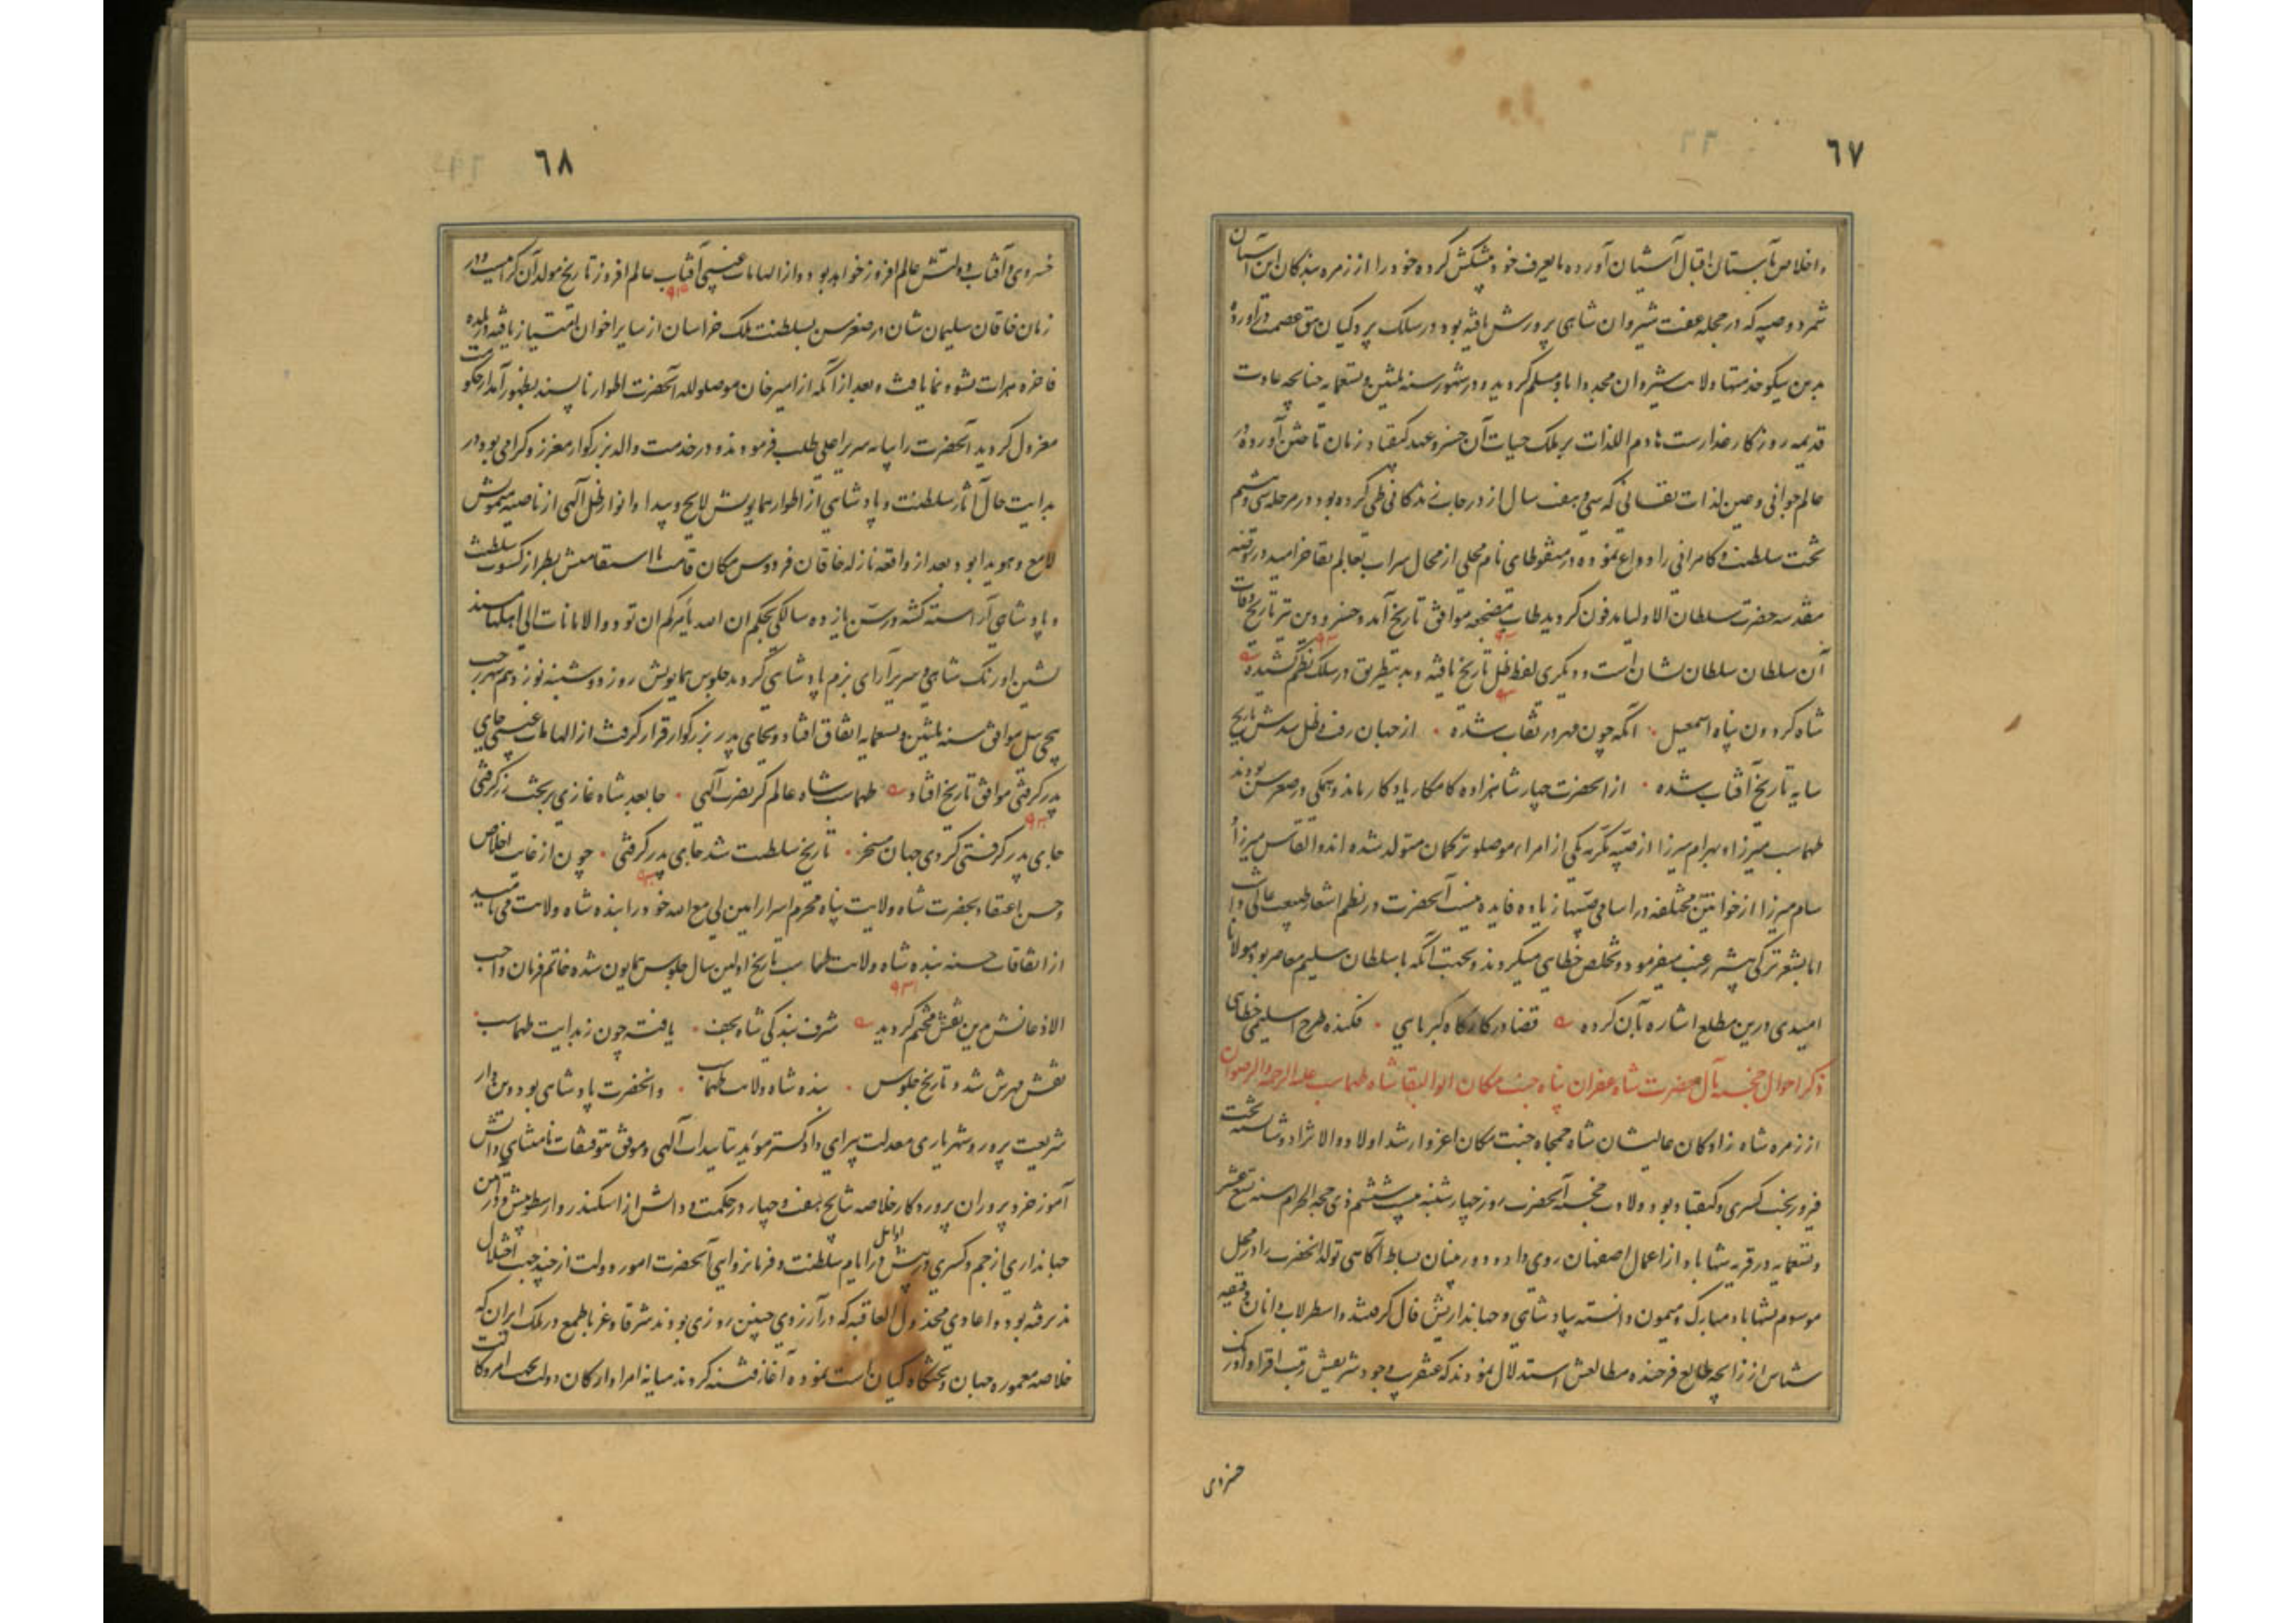 ٦٧
و اخلاص بآستان اقبال آشیان آورده مایعرف خود پیشکش کرده خود را از زمره بندکان این آستان
شمرد و صبیه که در حجله عفت شیروان شاهی پرورش یافته بود در سلک پردکیان تتق عصمت درآورده
بدین نیکو خدمتها ولایت شیروان مجددا باو مسلم کردید و در شهور سنه ثلثین و تسعمایه چنانچه عادت
قدیمه روزکار غدارست هادم اللذات بر ملک حیات آن خسرو عهد کیقباد زمان تاختن آورده در
عالم جوانی و عین لذات نفسانی که سی و هفت سال از درجات زندکانی طی کرده بود در مرحله سی و هشتم
تخت سلطنت و کامرانی را وداع نموده در منقوطای نام محلی از محال سراب بعالم بقا خرامید در روضه
مقدسه حضرت سلطان الاولیا مدفون کردید طاب مضجعه موافق تاریخ آمد و خسرو دین نیز تاریخ وفات
آن سلطان سلطان نشان است و دیکری لفظ ظل تاریخ یافته و بدینطریق در سلک نظم کشیده
شاه کردون پناه اسمعیل ٠ آنکه چون مهر در نقاب شده ٠ از جهان رفت و ظل شدش تاریخ
سایه تاریخ آفتاب شده ٠ از آنحضرت چهار شاهزاده کامکار یادکار ماند و همکی در صغر سن بودند
طهماسب میرزا و بهرام میرزا از صبیه مکرمه یکی از امراء موصلو ترکمان متولد شده اند و القاس میرزا
سام میرزا از خواتین مختلفه در اسامی صبیها زیاده فایده نیست آنحضرت در نظم اشعار طبیعت عالی داشت
اما بشعر ترکی بیشتر رغبت میفرمود و تخلص خطایی میکردند و بجهت آنکه با سلطان سلیم معاصر بود مولانا
امیدی درین مطلع اشاره بآن کرده قضا در کارکاه کبریایی ٠ فکنده طرح اسلیمی خطایی
ذکر احوال خجسته مآل حضرت شاه غفران پناه جنت مکان ابوالبقا شاه طهماسب علیه الرحمه والرضوان
از زمره شاه زادکان عالیشان شاه جمجاه جنت مکان اعز و ارشد اولاد والا نژاد و شایسته تخت
فریدون بخت کسری و کیقباد بود و ولادت خجسته آنحضرت روز چهارشنبه بیست ششم ذی حجه الحرام سنه تسع عشر
و تسعمایه در قریه شهاباد از اعمال اصفهان روی داده دوربینان بساط آکاهی تولد آنحضرت را در محل
موسوم بشهاباد مبارک و میمون دانسته بپادشاهی و جهانداریش فال کرفتند و اسطرلاب دانان دقیقه
شناس از زایجه طالع فرخنده مطالعش استدلال نمودند که عنقریب وجود شریفش رتبت افزا اورنک
خسروی
٦٨
خسروی و آفتاب دولتش عالم افروز خواهد بود و از الهامات غیبی آفتاب عالم افروز تاریخ مولد آن کرامیست در
٩١٩
زمان خاقان سلیمان شان در صغر سن بسلطنت ملک خراسان از سایر اخوان امتیاز یافته در بلده
فاخره هرات نشو و نما یافت و بعد از آنکه از امیر خان موصلو لله آنحضرت اطوار ناپسند بظهور آمد از حکومت
معزول کردید آنحضرت را بپایه سریر اعلی طلب فرمودند و در خدمت والد بزرکوار معزز و کرامی بود در
بدایت حال آثار سلطنت و پادشاهی از اطوار همایونش لایح و پیدا و انوار ظل آلهی از ناصیه میمونش
لامع و هویدا بود بعد از واقعه نازله خاقان فردوس مکان قامت با استقامتش بطراز کسوت سلطنت
و پادشاهی آراسته کشته در سن یازده سالکی بحکم ان الله یامرکم ان تودوا الامانات الی اهلها مسند
نشین اورنک شاهی و سریر آرای بزم پادشاهی کردید جلوس همایونش روز دوشنبه نوزدهم شهر رجب
یچی ئیل موافق سنه ثلثین و تسعمایه اتفاق افتاد و بجای پدر بزرکوار قرار کرفت از الهامات غیبی جای
پدر کرفتی موافق تاریخ افتاد طهماسب شاه عالم کز نصرت آلهی ٠ جا بعد شاه غازی بر تخت زر کرفتی
٩٣٠
جای پدر کرفتی کردی جهان مسخر ٠ تاریخ سلطنت شد جای پدر کرفتی ٠ چون از غایت اخلاص
و حسن اعتقاد بحضرت شاه ولایت پناه محرم اسرار این لی مع الله خود را بنده شاه ولایت می نامید
از اتفاقات حسنه بنده شاه ولایت طهماسب تاریخ اولین سال جلوس همایون شده خاتم فرمان واجب
٩٣١
الاذعانش بدین نقش مختم کردید شرف بندکی شاه نجف ٠ یافت چون زبدایت طهماسب ٠
نقش مهرش شد و تاریخ جلوس ٠ بنده شاه ولایت طهماسب ٠ و آنحضرت پادشاهی بود دین دار
شریعت پرور و شهریاری معدلت پیرای دادکستر موید بتاییدات آلهی و موفق بتوفیقات نامتناهی دانش
آموز خرد پروران پروردکار خلاصه نتایج هفت و چهار در حکمت و دانش از اسکندر و ارسطو بیش و در آیین
جهانداری از جم و کسری در پیش در اوایل ایام سلطنت و فرمانروایی آنحضرت امور دولت از چند جهت اختلال
پذیرفته بود و اعادی مخذول العاقبه که در آرزوی چنین روزی بودند شرقا و غربا طمع در ملک ایران که
خلاصه معموره جهان و تختکاه کیان است نموده آغاز فتنه کردند میانه امرا و ارکان دولت بجهت امر وکالت